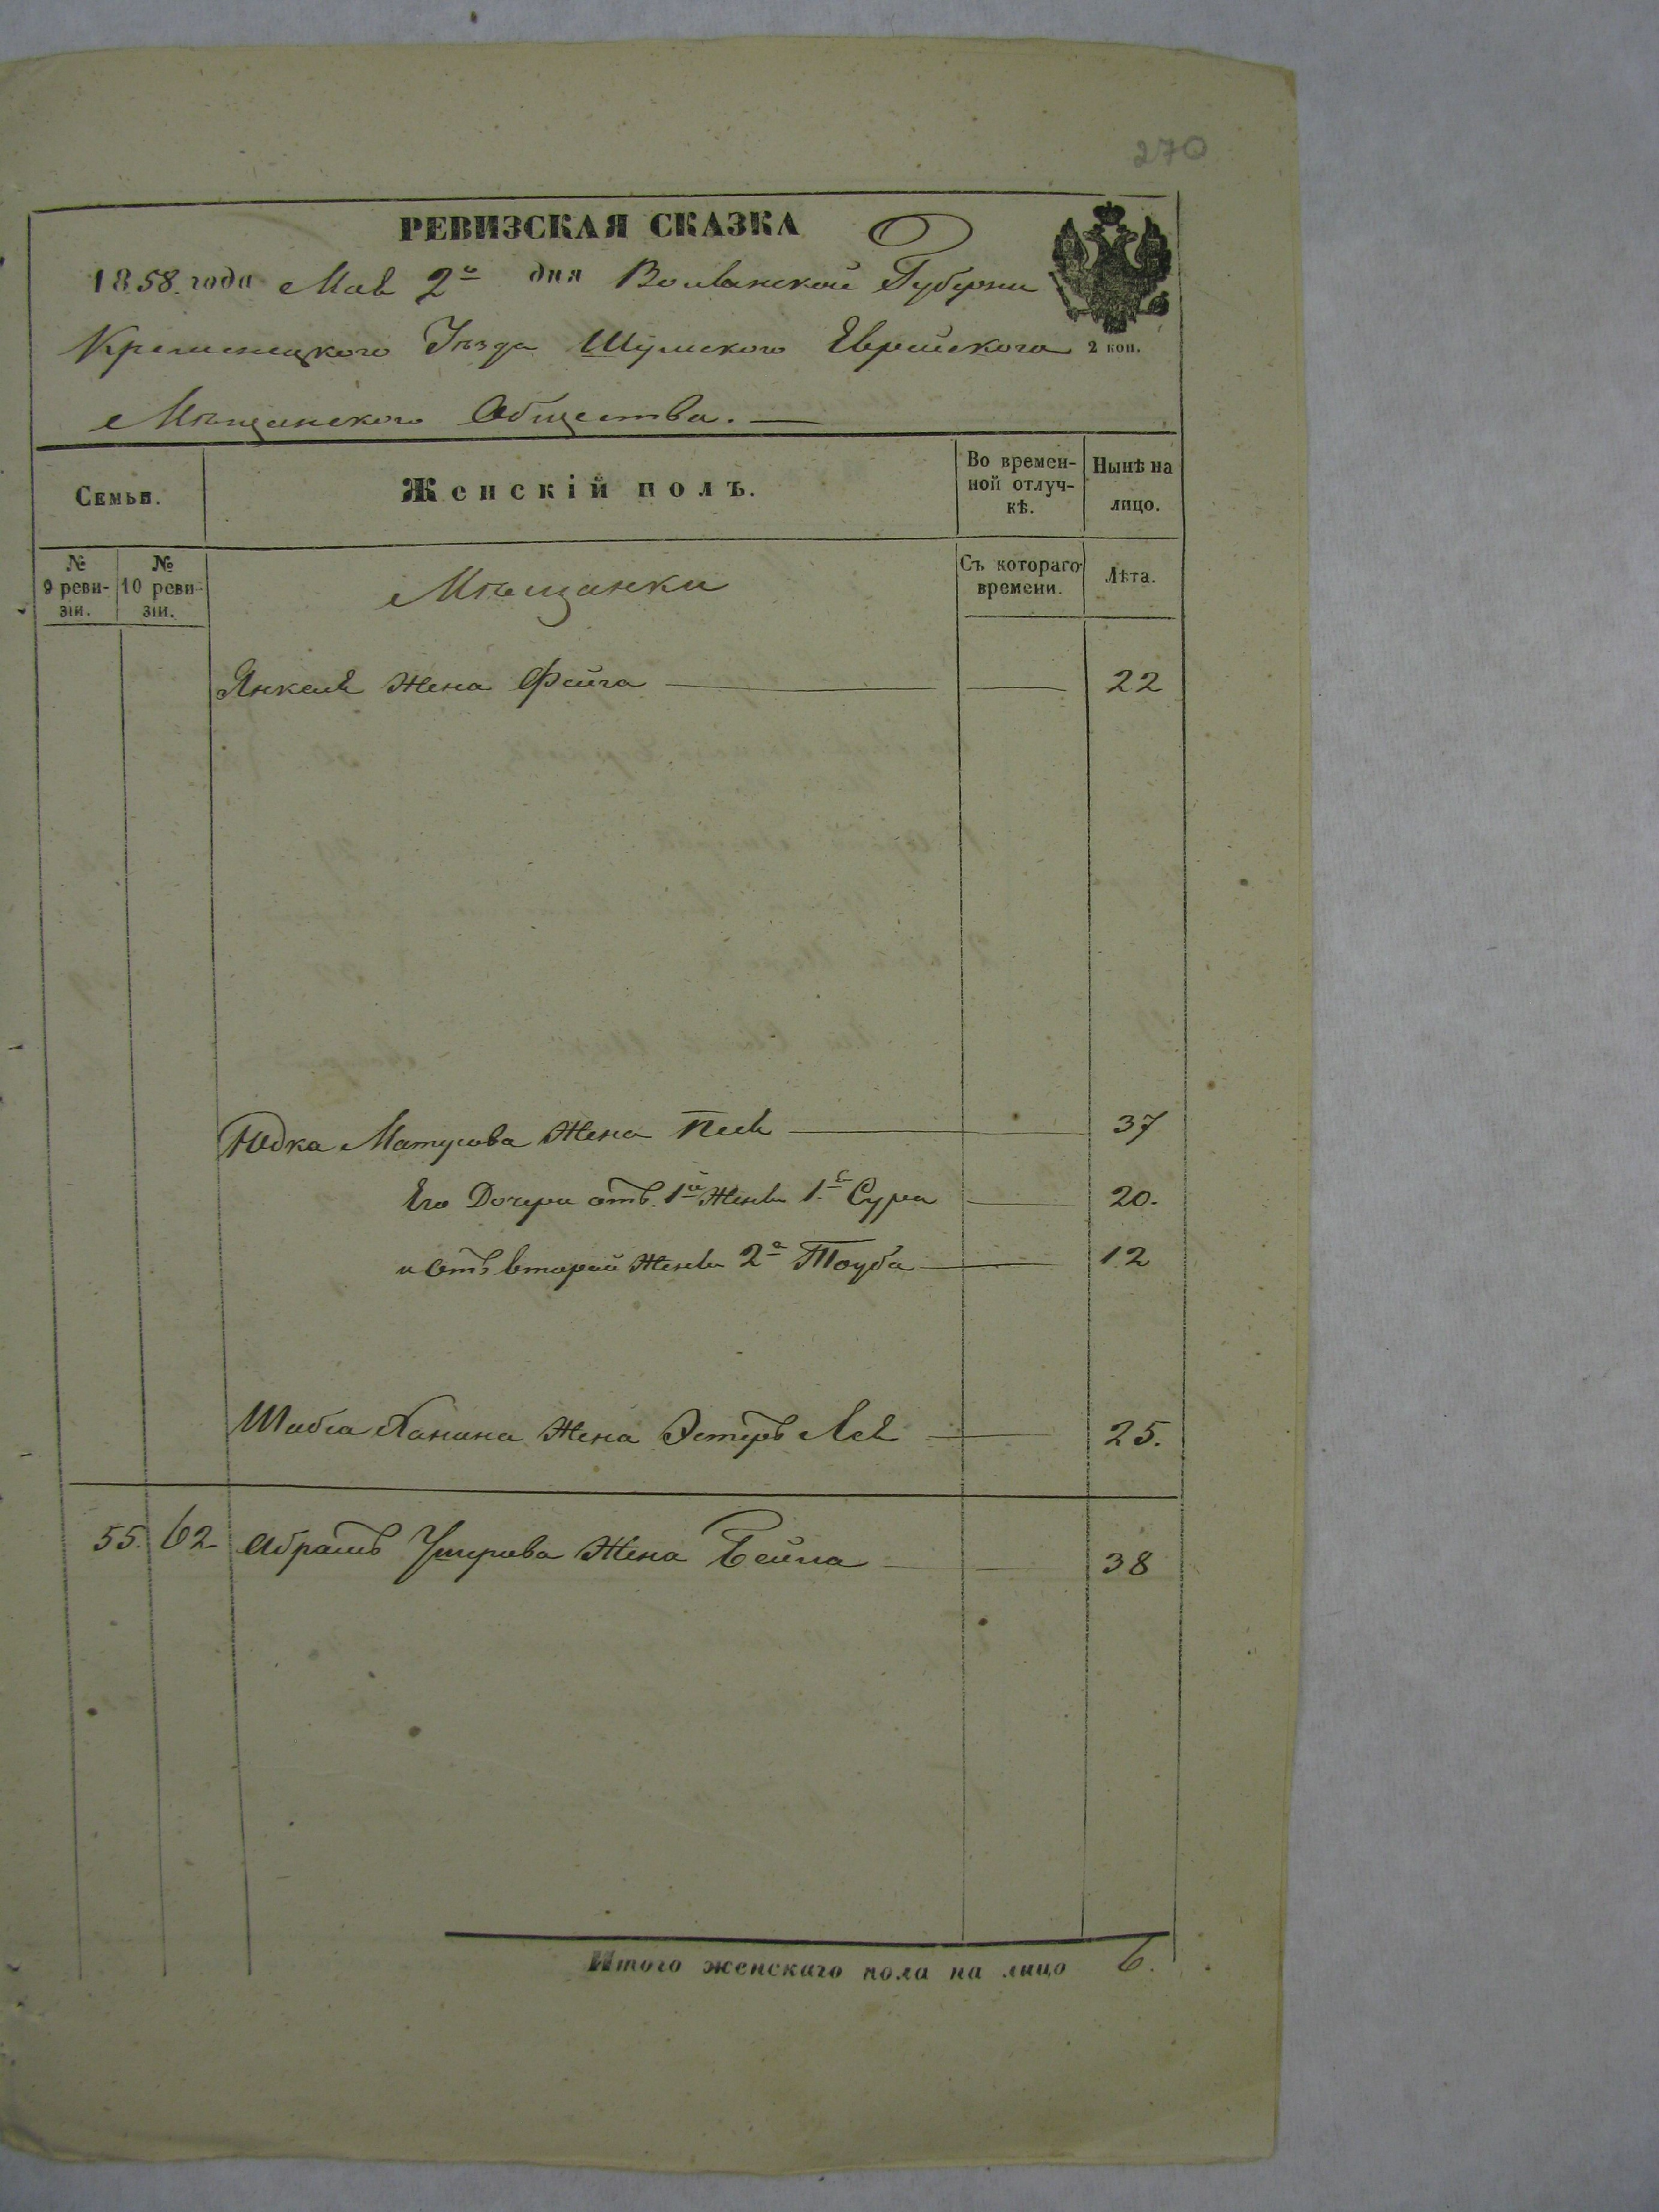 270
РЕВИЗСКАЯ СКАЗКА
1858 года Мая 2го дня Волынской Губернии
Кременецкого Уѣзда Шумского Еврейского 2 коп.
Мѣщанского Общества. —
Семьи. Женскій полъ. Во времен-ной отлуч-кѣ. Нынѣ на лицо.
№ 9 реви-зіи. № 10 реви-зіи. Мѣщанки Съ котораго времени. Лѣта.
Янкеля Жена Фейга — — 22
Юдка Матусова Жена Песя — 37
Его Дочери отъ 1й Жены 1я Сура — 20.
и отъ второй Жены 2я Тауба — 12
Жена Эстеръ Лея — 25.
55. 62 Абрамъ Жена Бейла — 38
Итого женскаго пола на лицо 6.